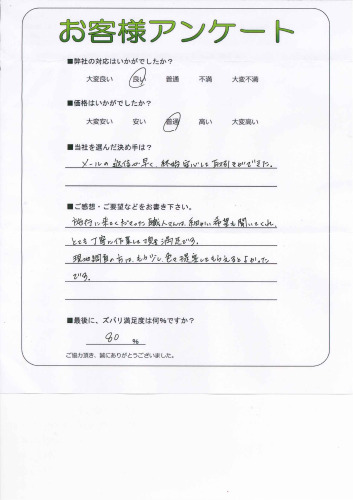 お客様アンケート
■弊社の対応はいかがでしたか?
大変良い 良い 普通 不満 大変不満
■価格はいかがでしたか?
大変安い 安い 普通 高い 大変高い
■当社を選んだ決め手は?
メールの返信が早く、終始安心して取引ができた。
■ご感想・ご要望などをお書き下さい。
施行に来てくださった職人さんは、細かい希望も聞いてくれ、
とても丁寧に作業して頂き満足です。
現地調査の方は、もう少し色々提案してもらえるとよかった
です。
■最後に、ズバリ満足度は何%ですか?
80 %
ご協力頂き、誠にありがとうございました。